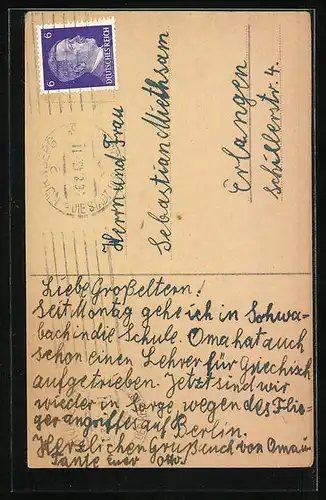 6
6
DEUTSCHES REICH
2
DIE STADT
Herrn und Frau
Sebastian Miethsam
Erlangen
Schillerstr. 4.
Liebe Großeltern!
Seit Montag gehe ich in Schwa-
bach in die Schule. Oma hat auch
schon einen Lehrer für Griechisch
aufgetrieben. Jetzt sind wir
wieder in Sorge wegen des Flie-
gerangriffes auf Berlin.
Herzlichen Gruß auch von Oma u.
Tante Euer Otto.